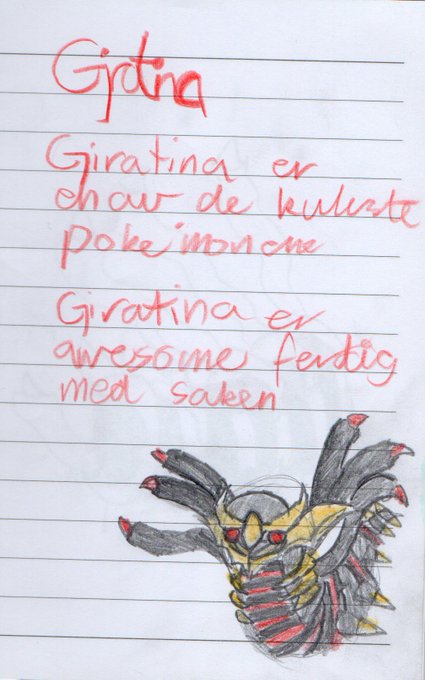 Giratina
Giratina er
en av de kuleste
pokémonene
Giratina er
awesome ferdig
med saken